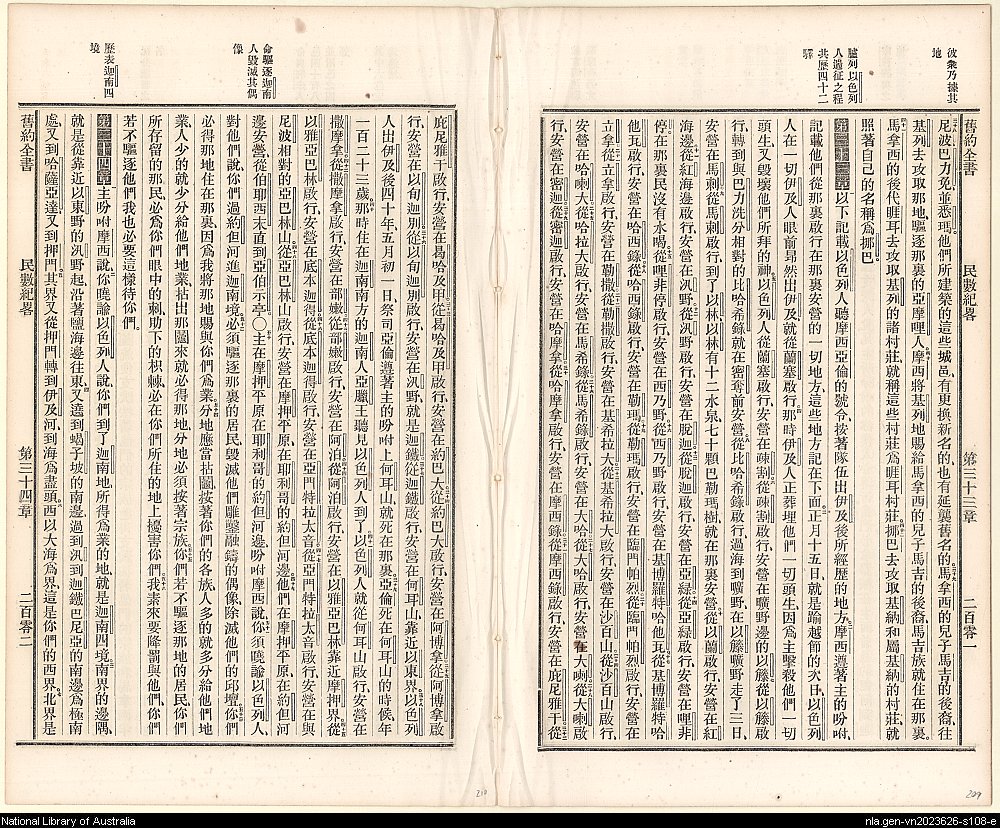 彼衆乃據其
地
臚列以色列
人遄征之程
共歷四十二
驛
舊約全書 民數紀畧 第三十三章 二百零一
尼波巴力免並悉瑪他們所建築的這些城邑有更換新名的也有延襲舊名的馬拿西的兒子馬吉的後裔往
基列去攻取那地驅逐那裏的亞摩哩人摩西將基列地賜給馬拿西的兒子馬吉的後裔馬吉族就住在那裏
馬拿西的後代睚耳去攻取基列的諸村莊就稱這些村莊爲睚耳村莊挪巴去攻取基納和屬基納的村莊就
照著自己的名稱爲挪巴
第三十三章以下記載以色列人聽摩西亞倫的號令按著隊伍出伊及後所經歷的地方摩西遵著主的吩咐
記載他們從那裏啟行在那裏安營的一切地方這些地方記在下面正月十五日就是踰越節的次日以色列
人在一切伊及人眼前昂然出伊及就從蘭塞啟行那時伊及人正葬埋他們一切頭生因爲主擊殺他們一切
頭生又毀壞他們所拜的神以色列人從蘭塞啟行安營在疎割從疎割啟行安營在曠野邊的以籐從以籐啟
行轉到與巴力洗分相對的比哈希錄就在密奪前安營從比哈希錄啟行過海到曠野在以籐曠野走了三日
安營在馬剌從馬剌啟行到了以林以林有十二水泉七十顆巴勒瑪樹就在那裏安營從以蘭啟行安營在紅
海邊從紅海邊啟行安營在汎野從汎野啟行安營在脫迦從脫迦啟行安營在亞綠從亞綠啟行安營在哩非
停在那裏民沒有水喝從哩非停啟行安營在西乃野從西乃野啟行安營在基博羅特哈他瓦從基博羅特哈
他瓦啟行安營在哈西錄從哈西錄啟行安營在勒瑪從勒瑪啟行安營在臨門帕烈從臨門帕烈啟行安營在
立拿從立拿啟行安營在勒撒從勒撒啟行安營在基希拉大從基希拉大啟行安營在沙百山從沙百山啟行
安營在哈喇大從哈拉大啟行安營在馬希錄從馬希錄啟行安營在大哈從大哈啟行安營在大喇從大喇啟
行安營在密迦從密迦啟行安營在哈摩拿從哈摩拿啟行安營在摩西錄從摩西錄啟行安營在庇尼雅干從
命驅逐迦南
人毀滅其偶
像
歷表迦南四
境
庇尼雅干啟行安營在曷哈及甲從曷哈及甲啟行安營在約巴大從約巴大啟行安營在阿博拿從阿博拿啟
行安營在以旬迦別從以旬迦別啟行安營在汎野就是迦鐵從迦鐵啟行安營在何耳山靠近以東界以色列
人出伊及後四十年五月初一日祭司亞倫遵著主的吩咐上何耳山就死在那裏亞倫死在何耳山的時候年
一百二十三歲那時住在迦南南方的迦南人亞臘王聽見以色列人到了以色列人就從何耳山啟行安營在
撒摩拿從撒摩拿啟行安營在部嫩從部嫩啟行安營在阿泊從阿泊啟行安營在以雅亞巴林靠近摩押界從
以雅亞巴林啟行安營在底本迦得從底本迦得啟行安營在亞門特拉太音從亞門特拉太音啟行安營在與
尼波相對的亞巴林山從亞巴林山啟行安營在摩押平原在耶利哥的約但河邊他們在摩押平原在約但河
邊安營從伯耶西末直到亞伯示亭〇主在摩押平原在耶利哥的約但河邊吩咐摩西說你須曉諭以色列人
對他們說你們過約但河進迦南境必須驅逐那裏的居民毀滅他們雕鑿融鑄的偶像除滅他們的邱壇你們
必得那地住在那裏因爲我將那地賜與你們爲業分地應當拈鬮按著你們的各族人多的就多分給他們地
業人少的就少分給他們地業拈出那鬮來就必得那地分地必須按著宗族你們若不驅逐那地的居民你們
所存留的那民必爲你們眼中的刺肋下的枳棘必在你們所住的地上擾害你們我素來要降罰與他們你們
若不驅逐他們我也必要這樣待你們
第三十四章主吩咐摩西說你曉諭以色列人說你們到了迦南地所得爲業的地就是迦南四境南界的邊隅
就是從靠近以東野的汎野起沿著鹽海邊往東又遶到蝎子坡的南邊過到汎到迦鐵巴尼亞的南邊爲極南
處又到哈薩亞達又到押門其界又從押門轉到伊及河到海爲盡頭西以大海爲界這是你們的西界北界是
舊約全書 民數紀畧 第三十四章 二百零二
210
209
National Library of Australia
nla.gen-vn2023626-s108-e